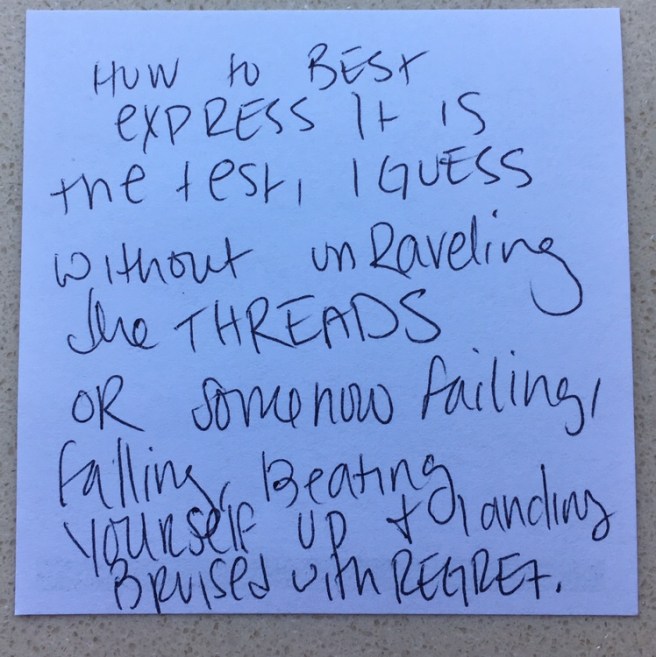 HOW to BEST
exPRESS It IS
the test, I GUESS
without unRaveling
the THREADS
OR somehow failing,
falling, Beating
YOURSelf UP + landing
BRuised with REGRET.